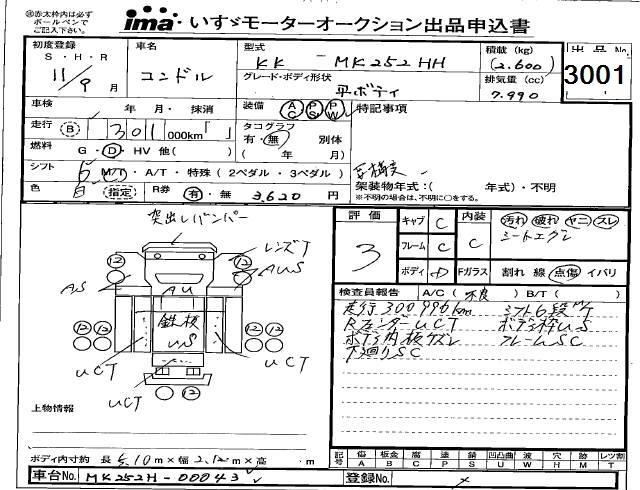 ㊟赤太枠内は必ず
ボールペンで
ご記入下さい。
ima いすゞモーターオークション出品申込書
初度登録
S・H・R
11/9月
車名
コンドル
型式
KK - MK252HH
グレード・ボディ形状
平ボディ
積載(kg)
(2.600)
排気量(cc)
7.990
出品No.
3001
車検 年 月・抹消
装備 AC PS PW
特記事項
走行 B 301 000km「 」
タコグラフ
有・無 別体
( 年 月)
燃料 G・D・HV 他( )
シフト 6 M/T・A/T・特殊(2ペダル・3ペダル)
色 白 (指定) R券 有・無 3.620円
架装物年式:( 年式)・不明
※不明の場合は、不明に○をする。
突出しバンパー
レンズT
AUS
AS
AU
鉄板
US
UCT
UCT
UCT
12 12 12 12 12 12 12
評価
3
キャブ C
フレーム C
ボディ D
内装 C
Fガラス
汚れ 破れ ヤニ スレ
シートエグレ
割れ 線 点傷 イバリ
検査員報告 A/C(不良) B/T( )
走行300996km シフト6段M/T
RフェンダーUCT ボデー枠US
ボデー内板ワレ フレームSC
下廻りSC
上物情報
ボディ内寸約 長5.10m×幅2.12m×高 ・ m
車台No. MK252H-00043
記号 傷A 板金B 腐C 塗P 錆S 凹凸凹曲U 波W 穴H 跡M レツ割T